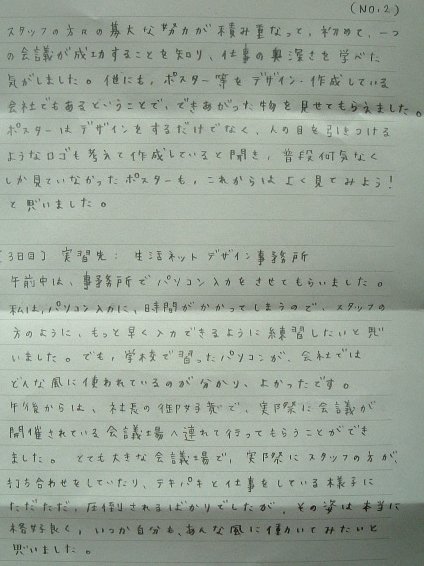 (NO.2)
スタッフの方々の莫大な努力が積み重なって、初めて、一つ
の会議が成功することを知り、仕事の奥深さを学べた
気がしました。他にも、ポスター等をデザイン・作成している
会社でもあるということで、できあがった物を見せてもらえました。
ポスターはデザインをするだけでなく、人の目を引きつける
ようなロゴも考えて作成していると聞き、普段何気なく
しか見ていなかったポスターも、これからはよく見てみよう!
と思いました。
[3日目] 実習先: 生活ネットデザイン事務所
午前中は、事務所でパソコン入力をさせてもらいました。
私は、パソコン入力に、時間がかかってしまうので、スタッフの
方のように、もっと早く入力できるように練習したいと思
いました。でも、学校で習ったパソコンが、会社では
どんな風に使われているのが分かり、よかったです。
午後からは、社長の御好意で、実際に会議が
開催されている会議場へ連れて行ってもらうことができ
ました。とても大きな会議場で、実際にスタッフの方が、
打ち合わせをしていたり、テキパキと仕事をしている様子に
ただただ、圧倒されるばかりでしたが、その姿は本当に
格好良く、いつか自分も、あんな風に働いてみたいと
思いました。